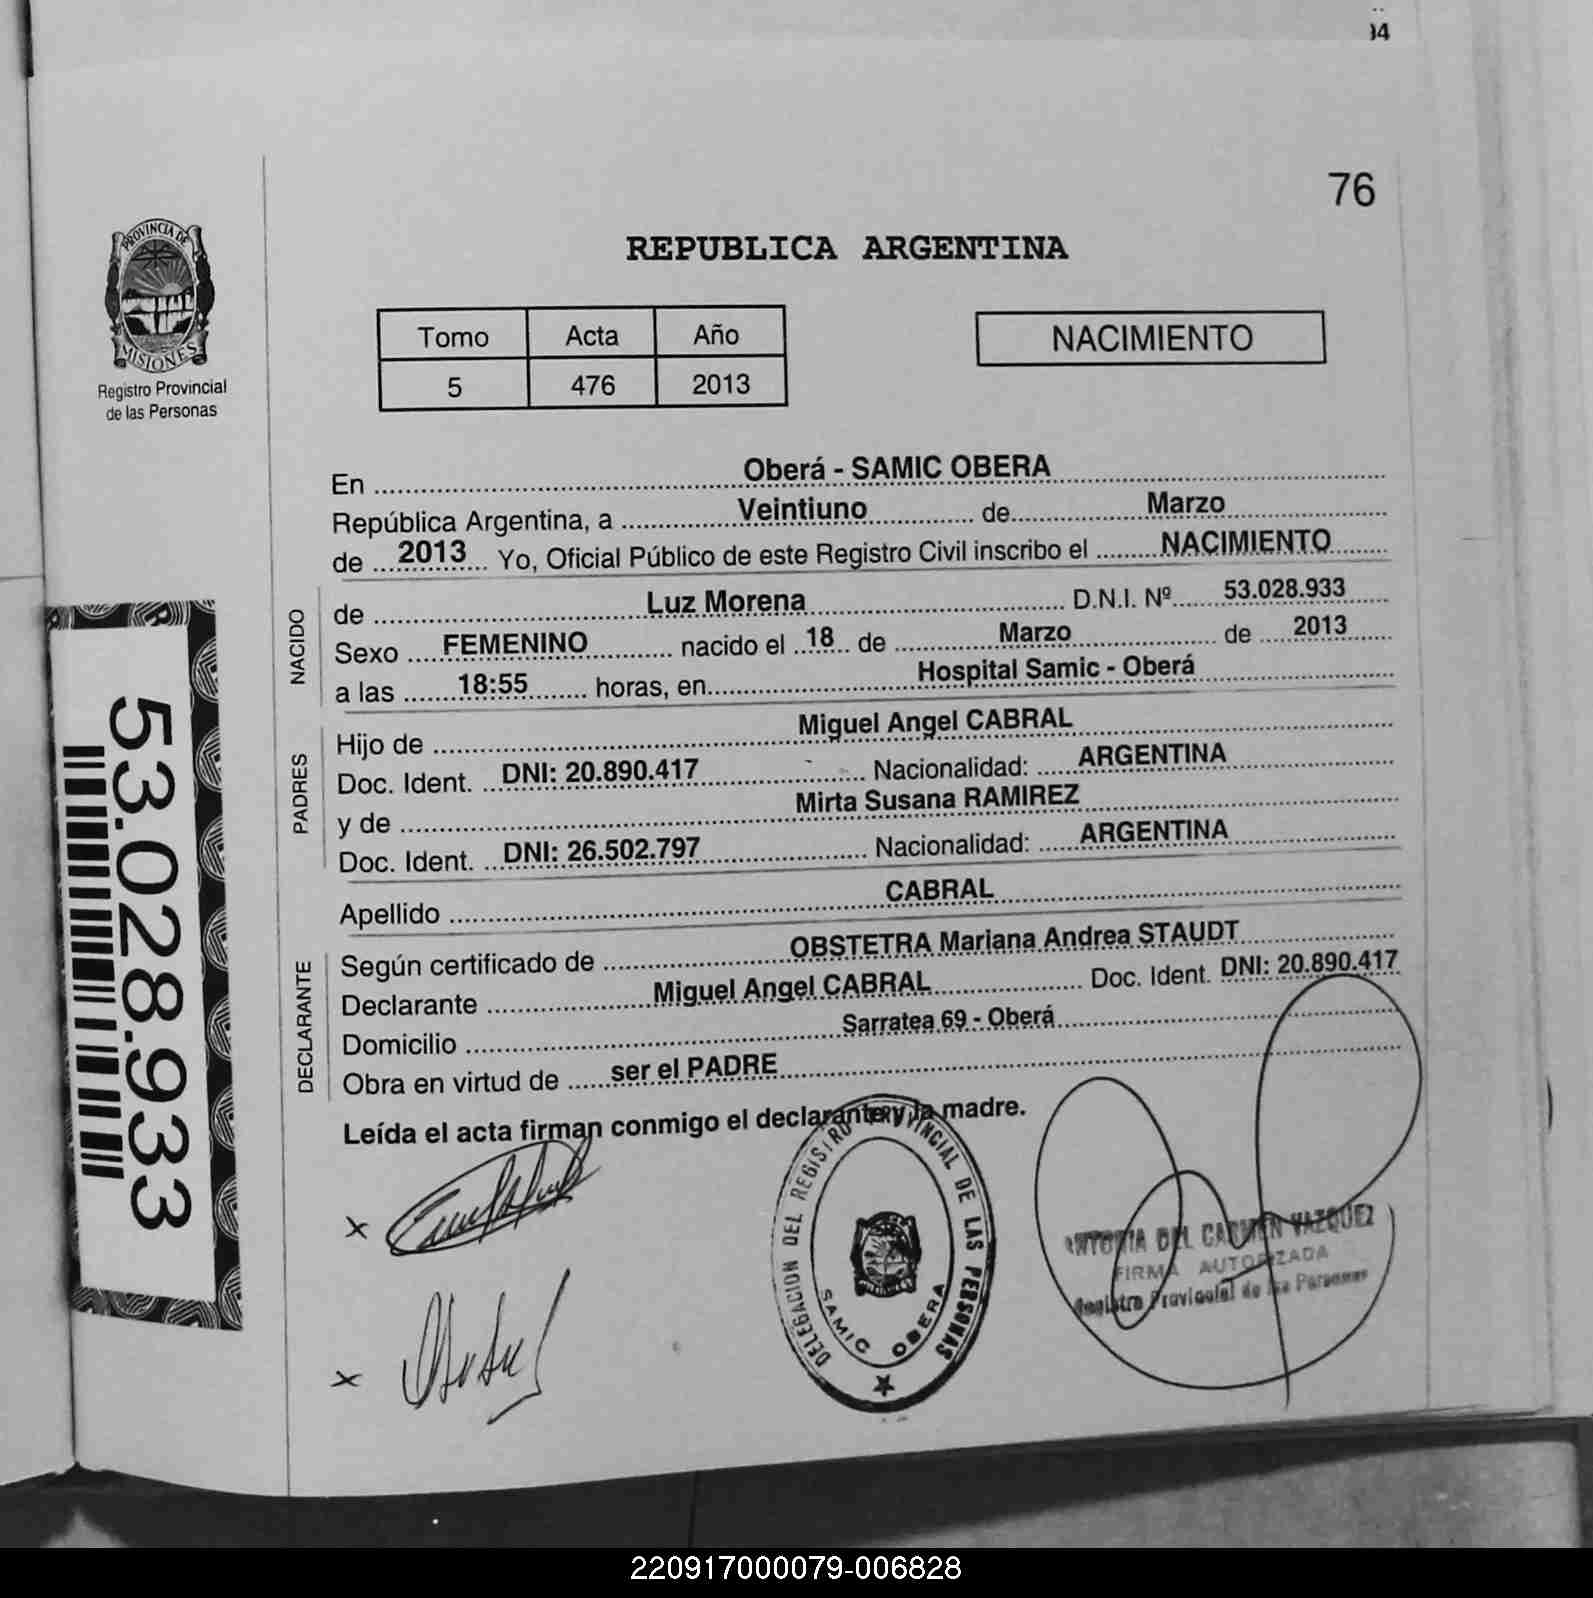 04
76
PROVINCIA DE
MISIONES
Registro Provincial
de las Personas
REPUBLICA ARGENTINA
Tomo Acta Año
5 476 2013
NACIMIENTO
En Oberá - SAMIC OBERA
República Argentina, a Veintiuno de Marzo
de 2013 Yo, Oficial Público de este Registro Civil inscribo el NACIMIENTO
NACIDO
de Luz Morena D.N.I. Nº 53.028.933
Sexo FEMENINO nacido el 18 de Marzo de 2013
a las 18:55 horas, en Hospital Samic - Oberá
PADRES
Hijo de Miguel Angel CABRAL
Doc. Ident. DNI: 20.890.417 Nacionalidad: ARGENTINA
y de Mirta Susana RAMIREZ
Doc. Ident. DNI: 26.502.797 Nacionalidad: ARGENTINA
Apellido CABRAL
DECLARANTE
Según certificado de OBSTETRA Mariana Andrea STAUDT
Declarante Miguel Angel CABRAL Doc. Ident. DNI: 20.890.417
Domicilio Sarratea 69 - Oberá
Obra en virtud de ser el PADRE
Leída el acta firman conmigo el declarante y la madre.
53.028.933
x
x
DELEGACION DEL REGISTRO PROVINCIAL DE LAS PERSONAS
SAMIC OBERA
ANTONIA DEL CARMEN VAZQUEZ
FIRMA AUTORIZADA
Registro Provincial de las Personas
220917000079-006828